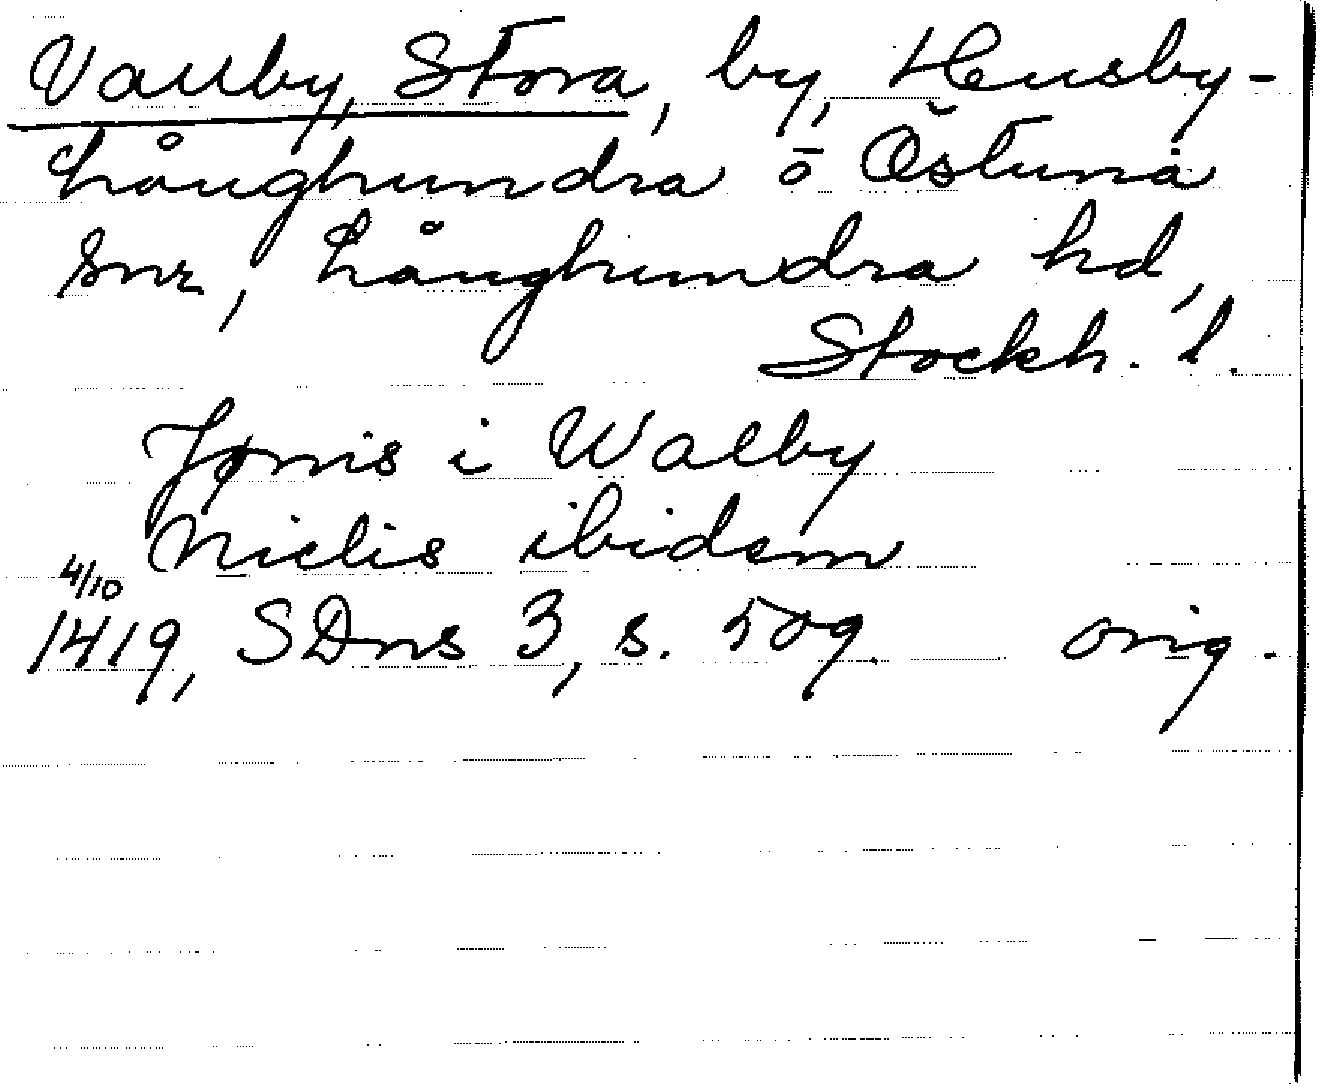 Vallby, Stora, by, Husby-
Långhundra o Östuna
snr, Långhundra hd,
Stockh. l.
Jønis i Walby
Niclis ibidem
4/10
1419, SDns 3, s. 509. orig.